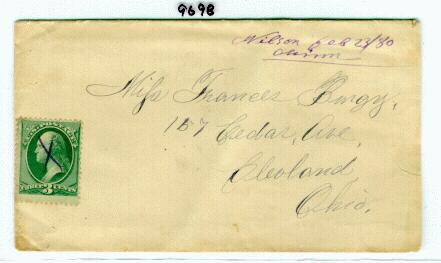 9698
Wilson Feb 23/80
Minn
Miss Frances Burgy,
157 Cedar, Ave,
Cleoland
Ohio.
U.S. POSTAGE
THREE 3 CENTS